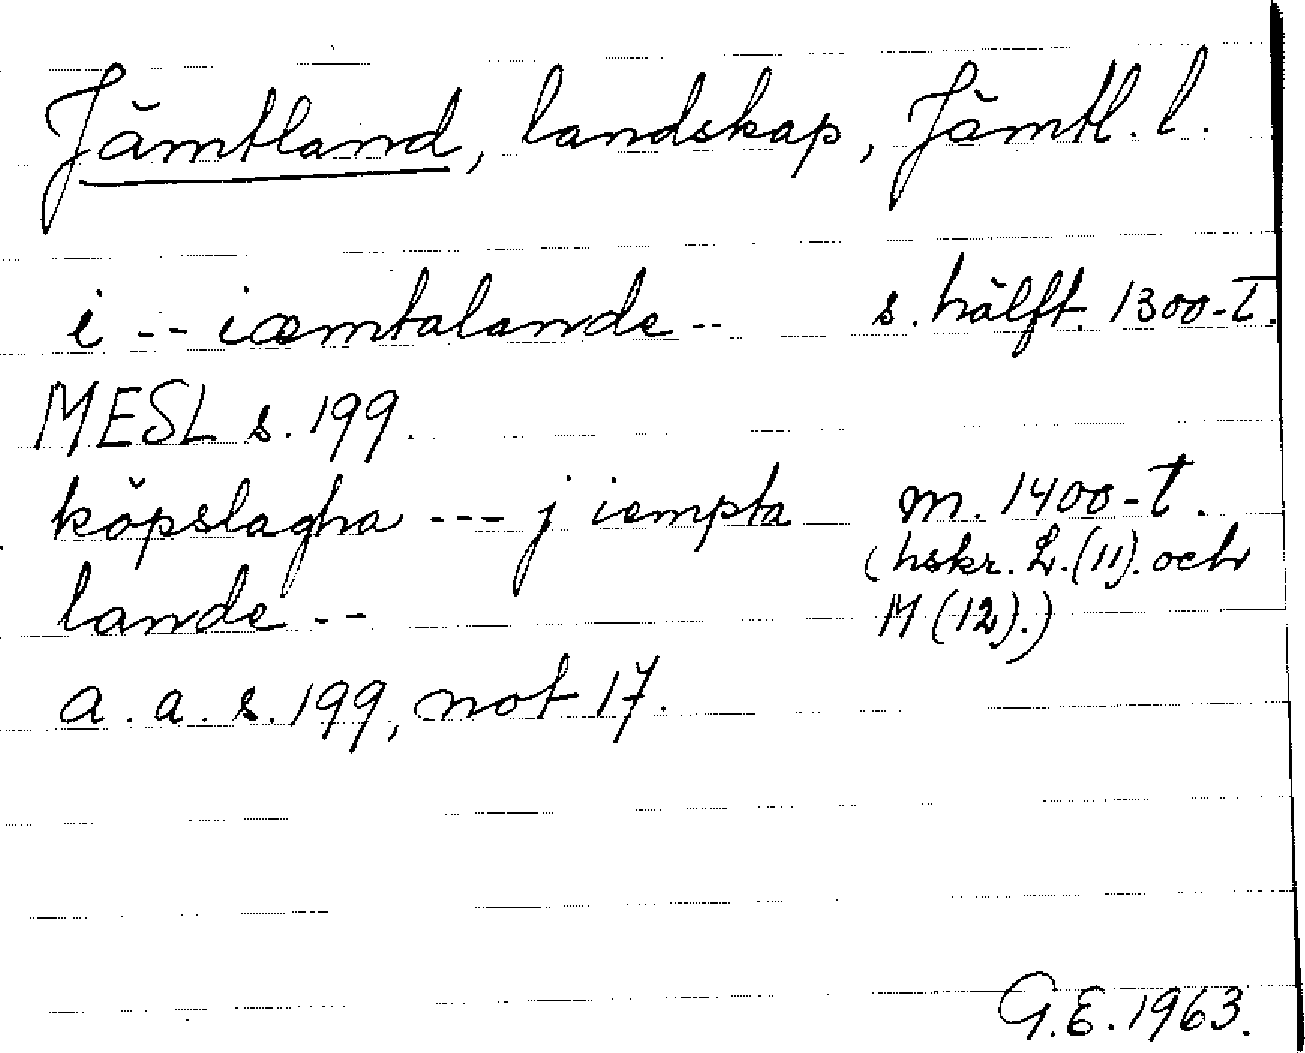 Jämtland, landskap, Jämtl. l.
i -- iæmtalande -- s. hälft. 1300-t.
MESL s. 199.
köpslagha --- j iempta m. 1400-t.
(hskr. L.(11). och
lande -- M (12).)
a. a. s. 199, not 17.
G.E. 1963.